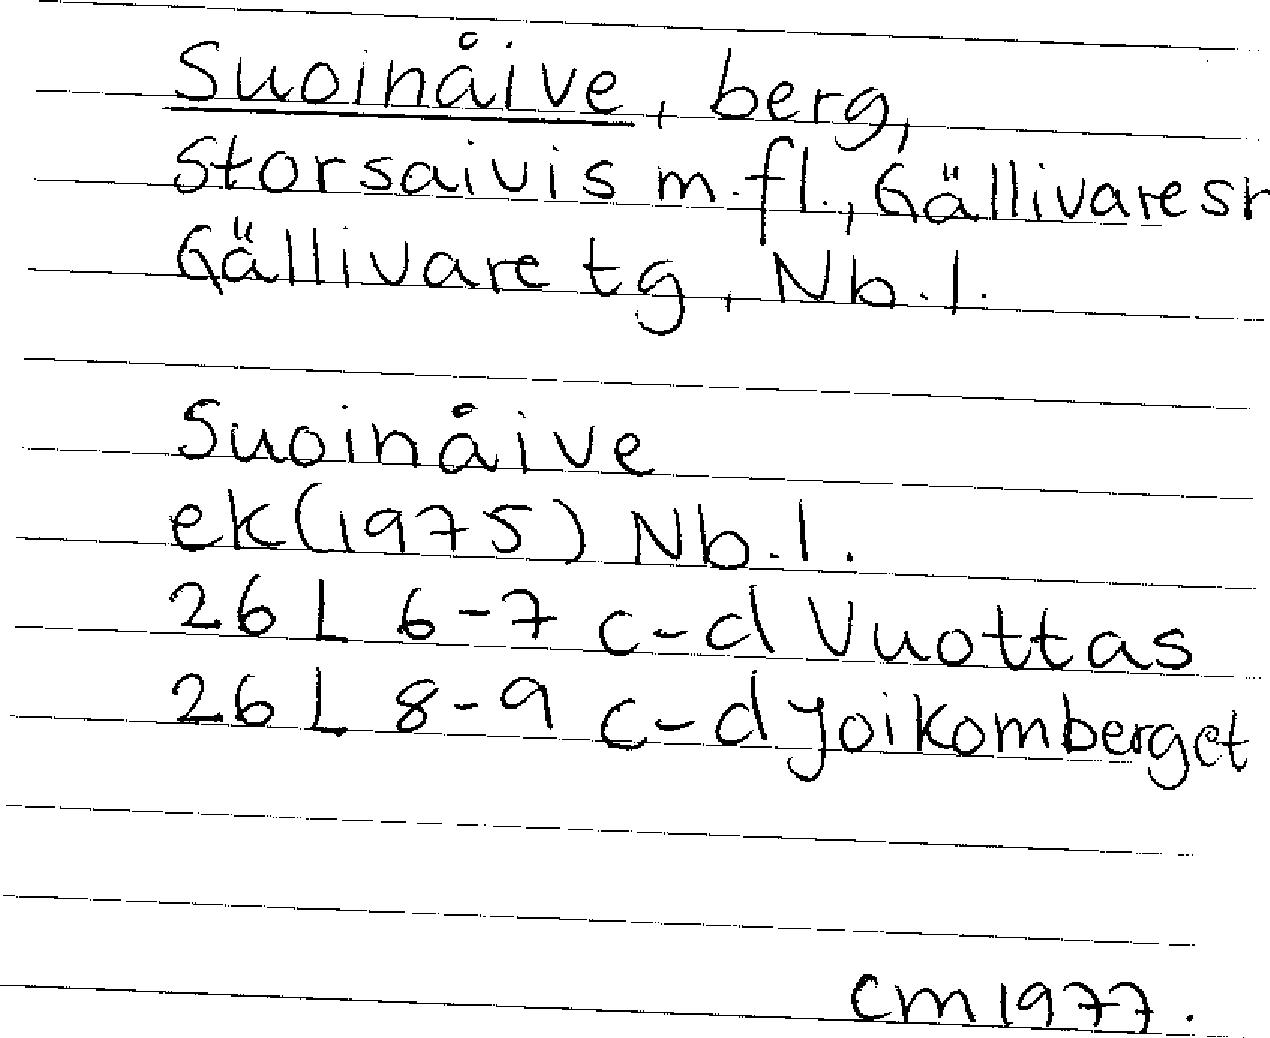 Suoinåive, berg,
Storsaivis m.fl., Gällivare sn
Gällivare tg, Nb.l.
Suoinåive
ek(1975) Nb.l.
26 L 6-7 c-d Vuottas
26 L 8-9 c-d Joikomberget
CM 1977.